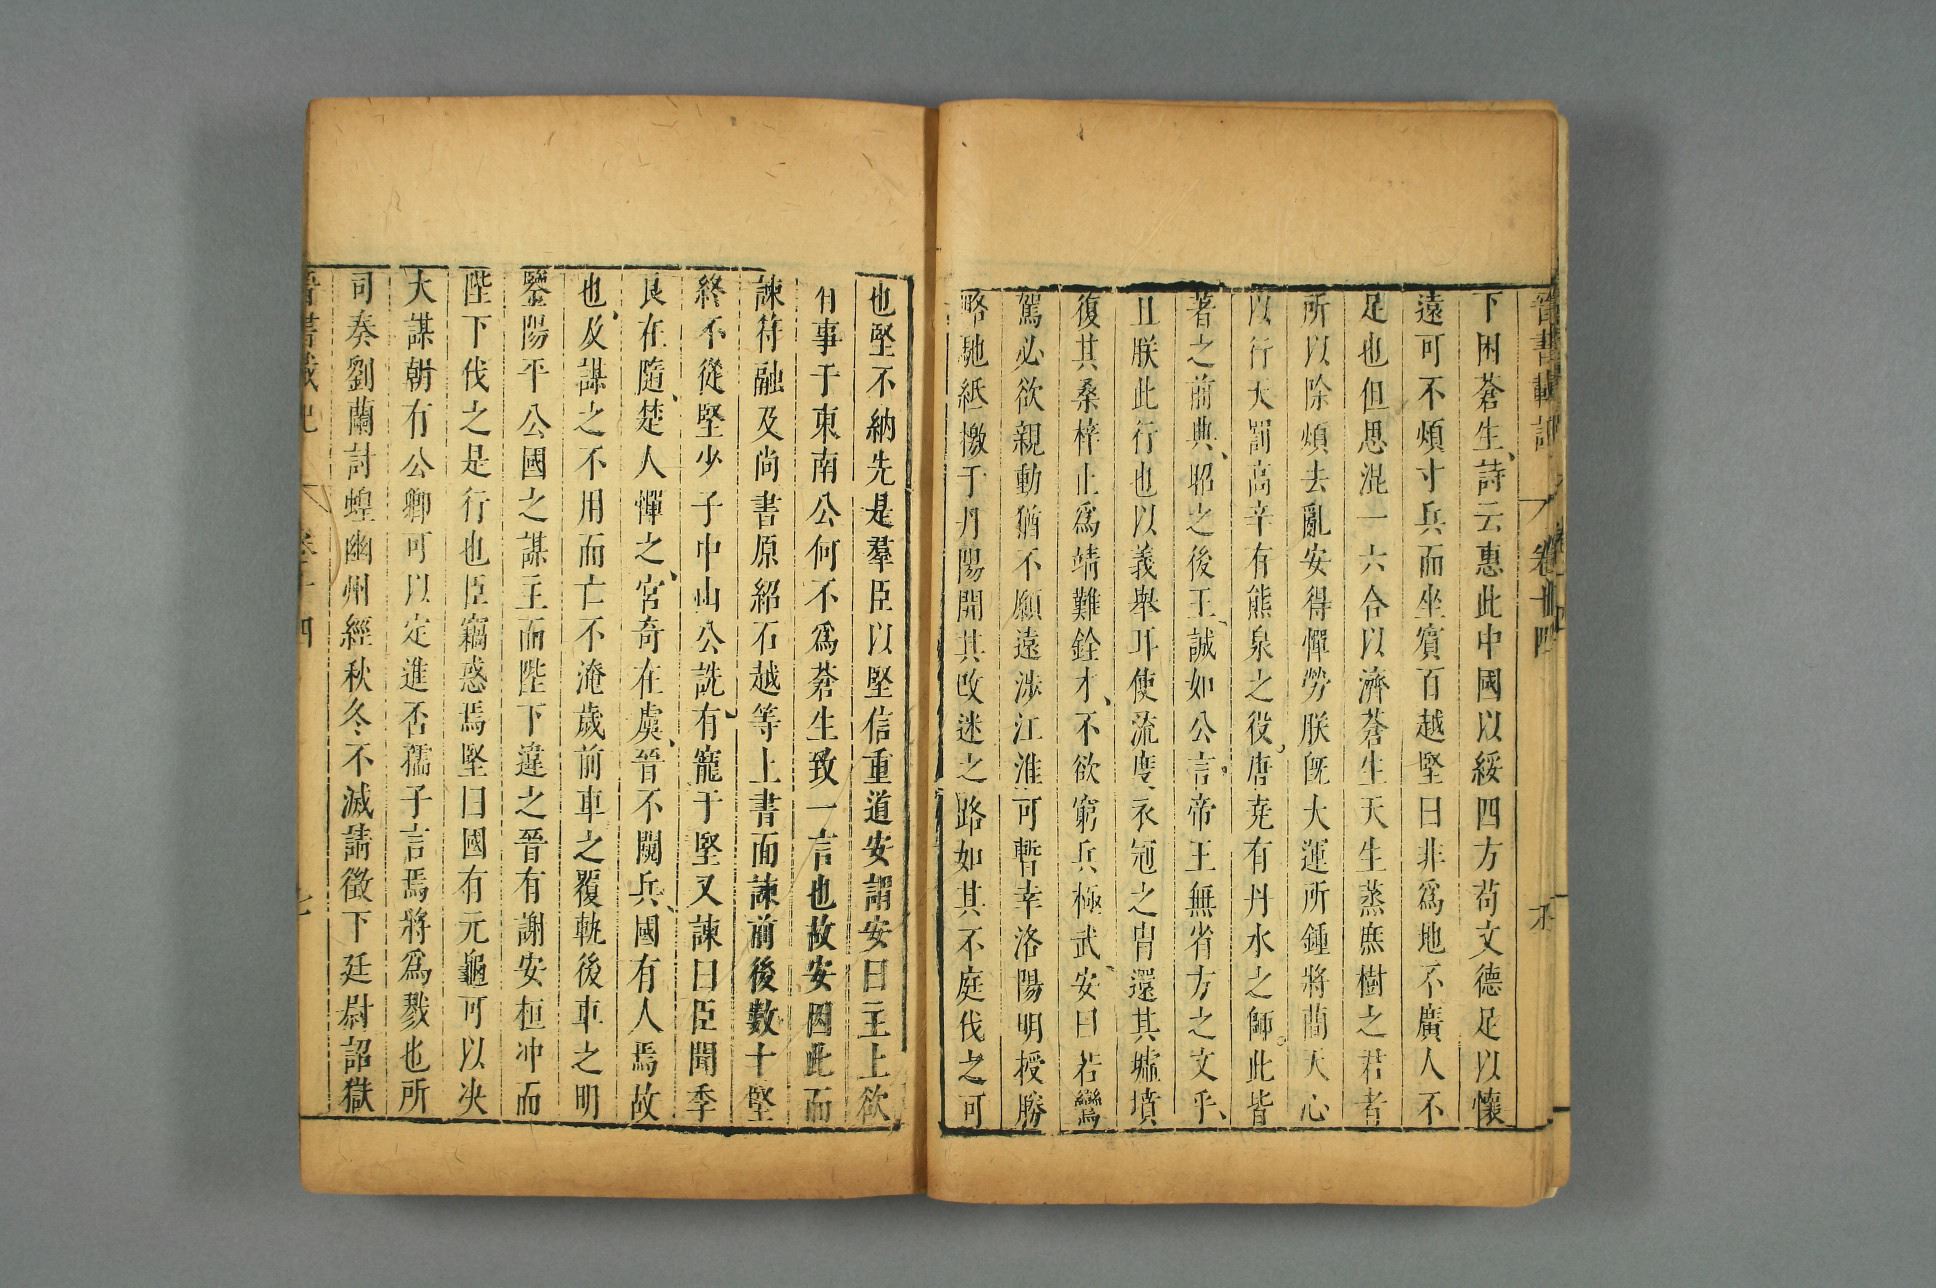 晉書載記 卷十四
下困蒼生詩云惠此中國以綏四方苟文德足以懷
遠可不煩寸兵而坐賓百越堅曰非爲地不廣人不
足也但思混一六合以濟蒼生天生蒸庶樹之君者
所以除煩去亂安得憚勞朕旣大運所鍾將簡天心
以行天罰高辛有熊泉之役唐堯有丹水之師此皆
著之前典昭之後王誠如公言帝王無省方之文乎
且朕此行也以義舉耳使流度衣冠之胄還其墟墳
復其桑梓止爲靖難銓才不欲窮兵極武安曰若鸞
駕必欲親動猶不願遠涉江淮可暫幸洛陽明授勝
略馳紙檄于丹陽開其改迷之路如其不庭伐之可
也堅不納先是羣臣以堅信重道安謂安曰主上欲
有事于東南公何不爲蒼生致一言也故安因此而
諫符融及尚書原紹石越等上書面諫前後數十堅
終不從堅少子中山公詵有寵于堅又諫曰臣聞季
良在隨楚人憚之宮奇在虞晉不闚兵國有人焉故
也及謀之不用而亡不淹歲前車之覆軌後車之明
鑒陽平公國之謀主而陛下違之晉有謝安桓冲而
陛下伐之是行也臣竊惑焉堅曰國有元龜可以決
大謀朝有公卿可以定進否孺子言焉將爲戮也所
司奏劉蘭討蝗幽州經秋冬不滅請徵下廷尉詔獄
晉書載記 卷十四 七